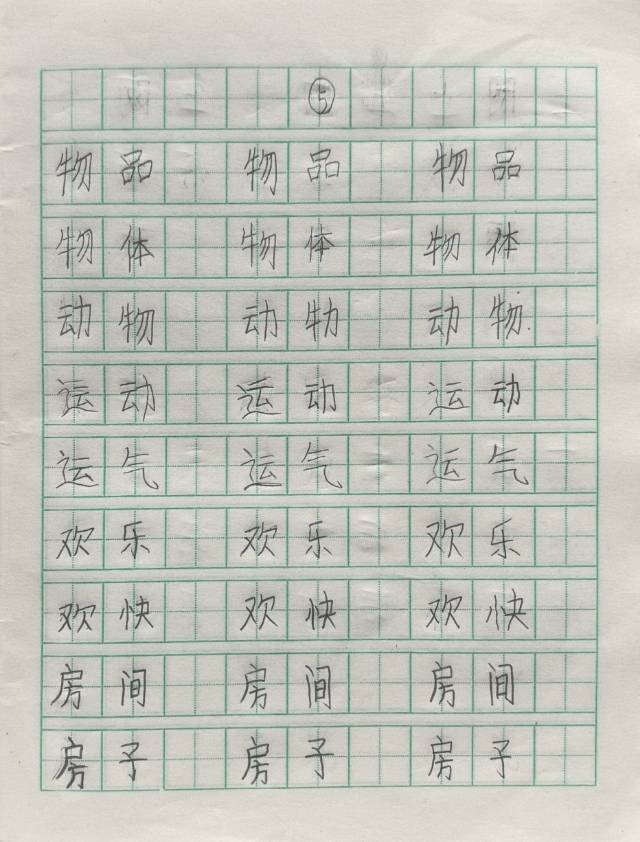 ⑤
物品 物品 物品
物体 物体 物体
动物 动物 动物
运动 运动 运动
运气 运气 运气
欢乐 欢乐 欢乐
欢快 欢快 欢快
房间 房间 房间
房子 房子 房子